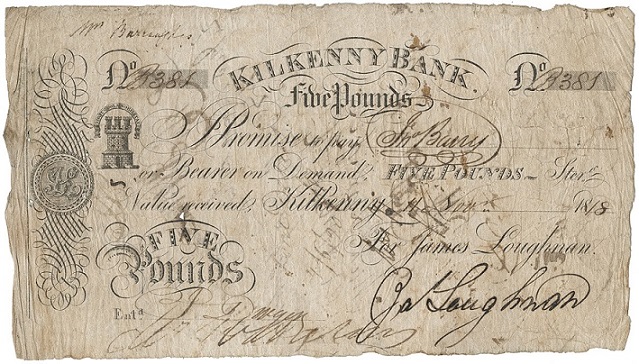 KILKENNY BANK.
No 9381 No 9381
Five Pounds
I Promise to pay Jno Barry
or Bearer on Demand, FIVE POUNDS — Ster.g
Value received, Kilkenny Novr 1818
For James Loughnan.
FIVE
Pounds
Jas Loughnan
Entd